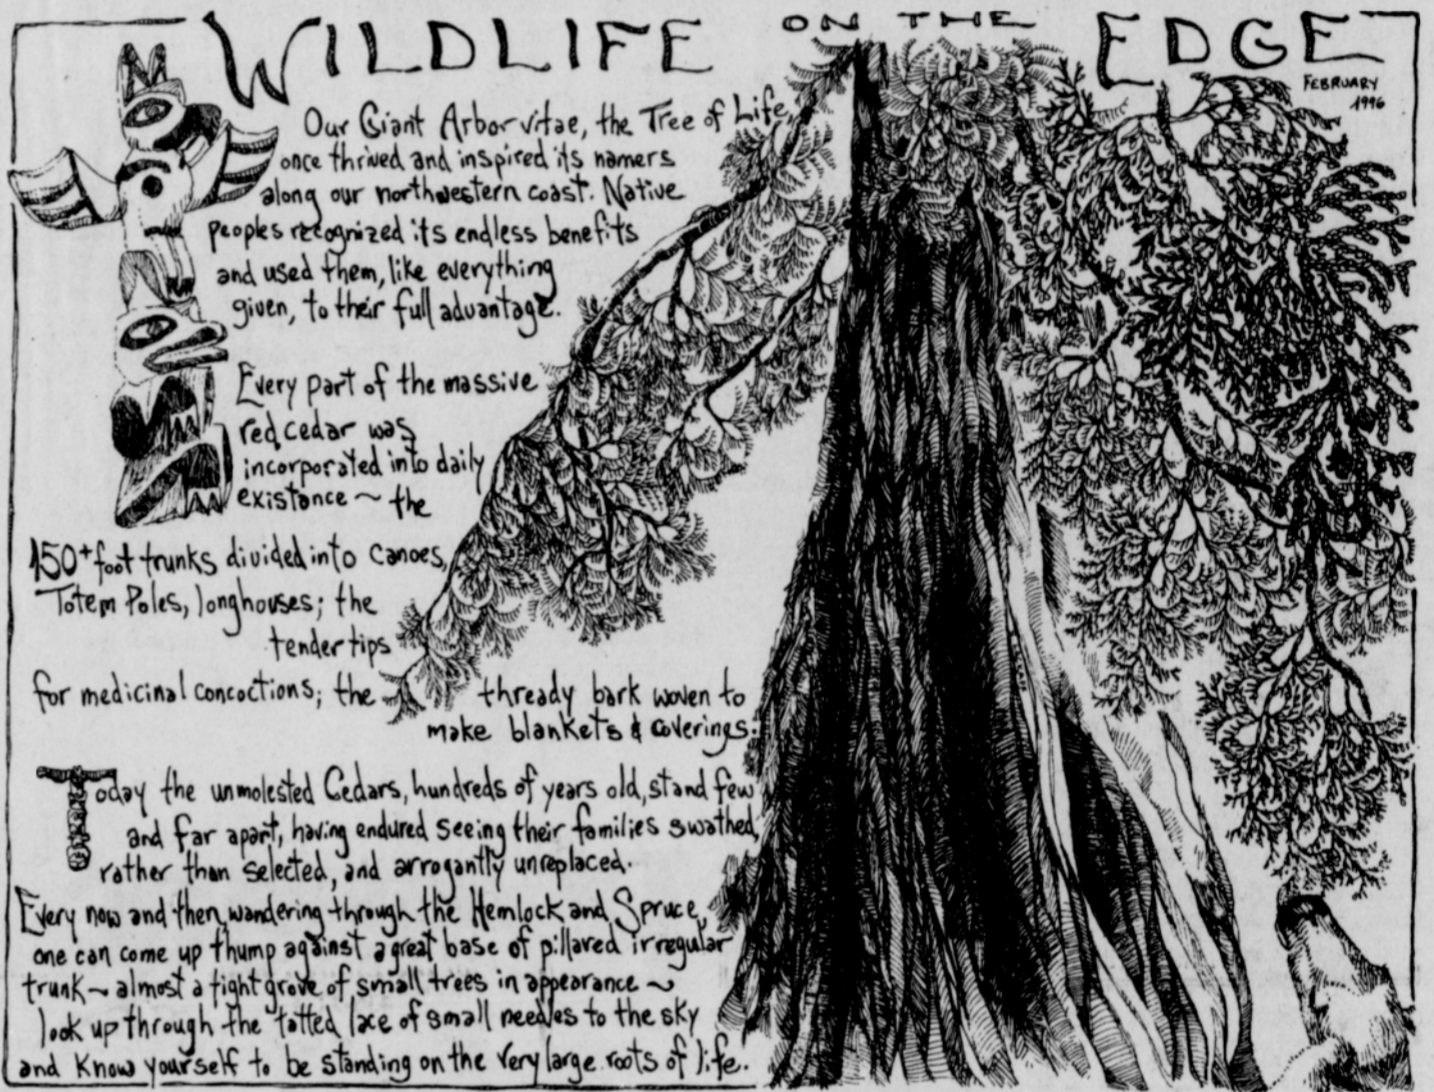 WILDLIFE ON THE EDGE
FEBRUARY
1996
Our Giant Arborvitae, the Tree of Life,
once thrived and inspired its namers
along our northwestern coast. Native
peoples recognized its endless benefits
and used them, like everything
given, to their full advantage.
Every part of the massive
red cedar was
incorporated into daily
existance ~ the
150+ foot trunks divided into canoes,
Totem Poles, longhouses; the
tender tips
for medicinal concoctions; the thready bark woven to
make blankets & coverings.
Today the unmolested Cedars, hundreds of years old, stand few
and far apart, having endured seeing their families swathed,
rather than selected, and arrogantly unreplaced.
Every now and then, wandering through the Hemlock and Spruce,
one can come up thump against a great base of pillared irregular
trunk ~ almost a tight grove of small trees in appearance ~
look up through the tatted lace of small needles to the sky
and know yourself to be standing on the very large roots of life.